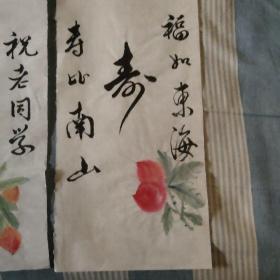 福如東海
寿
寿比南山
祝老同学